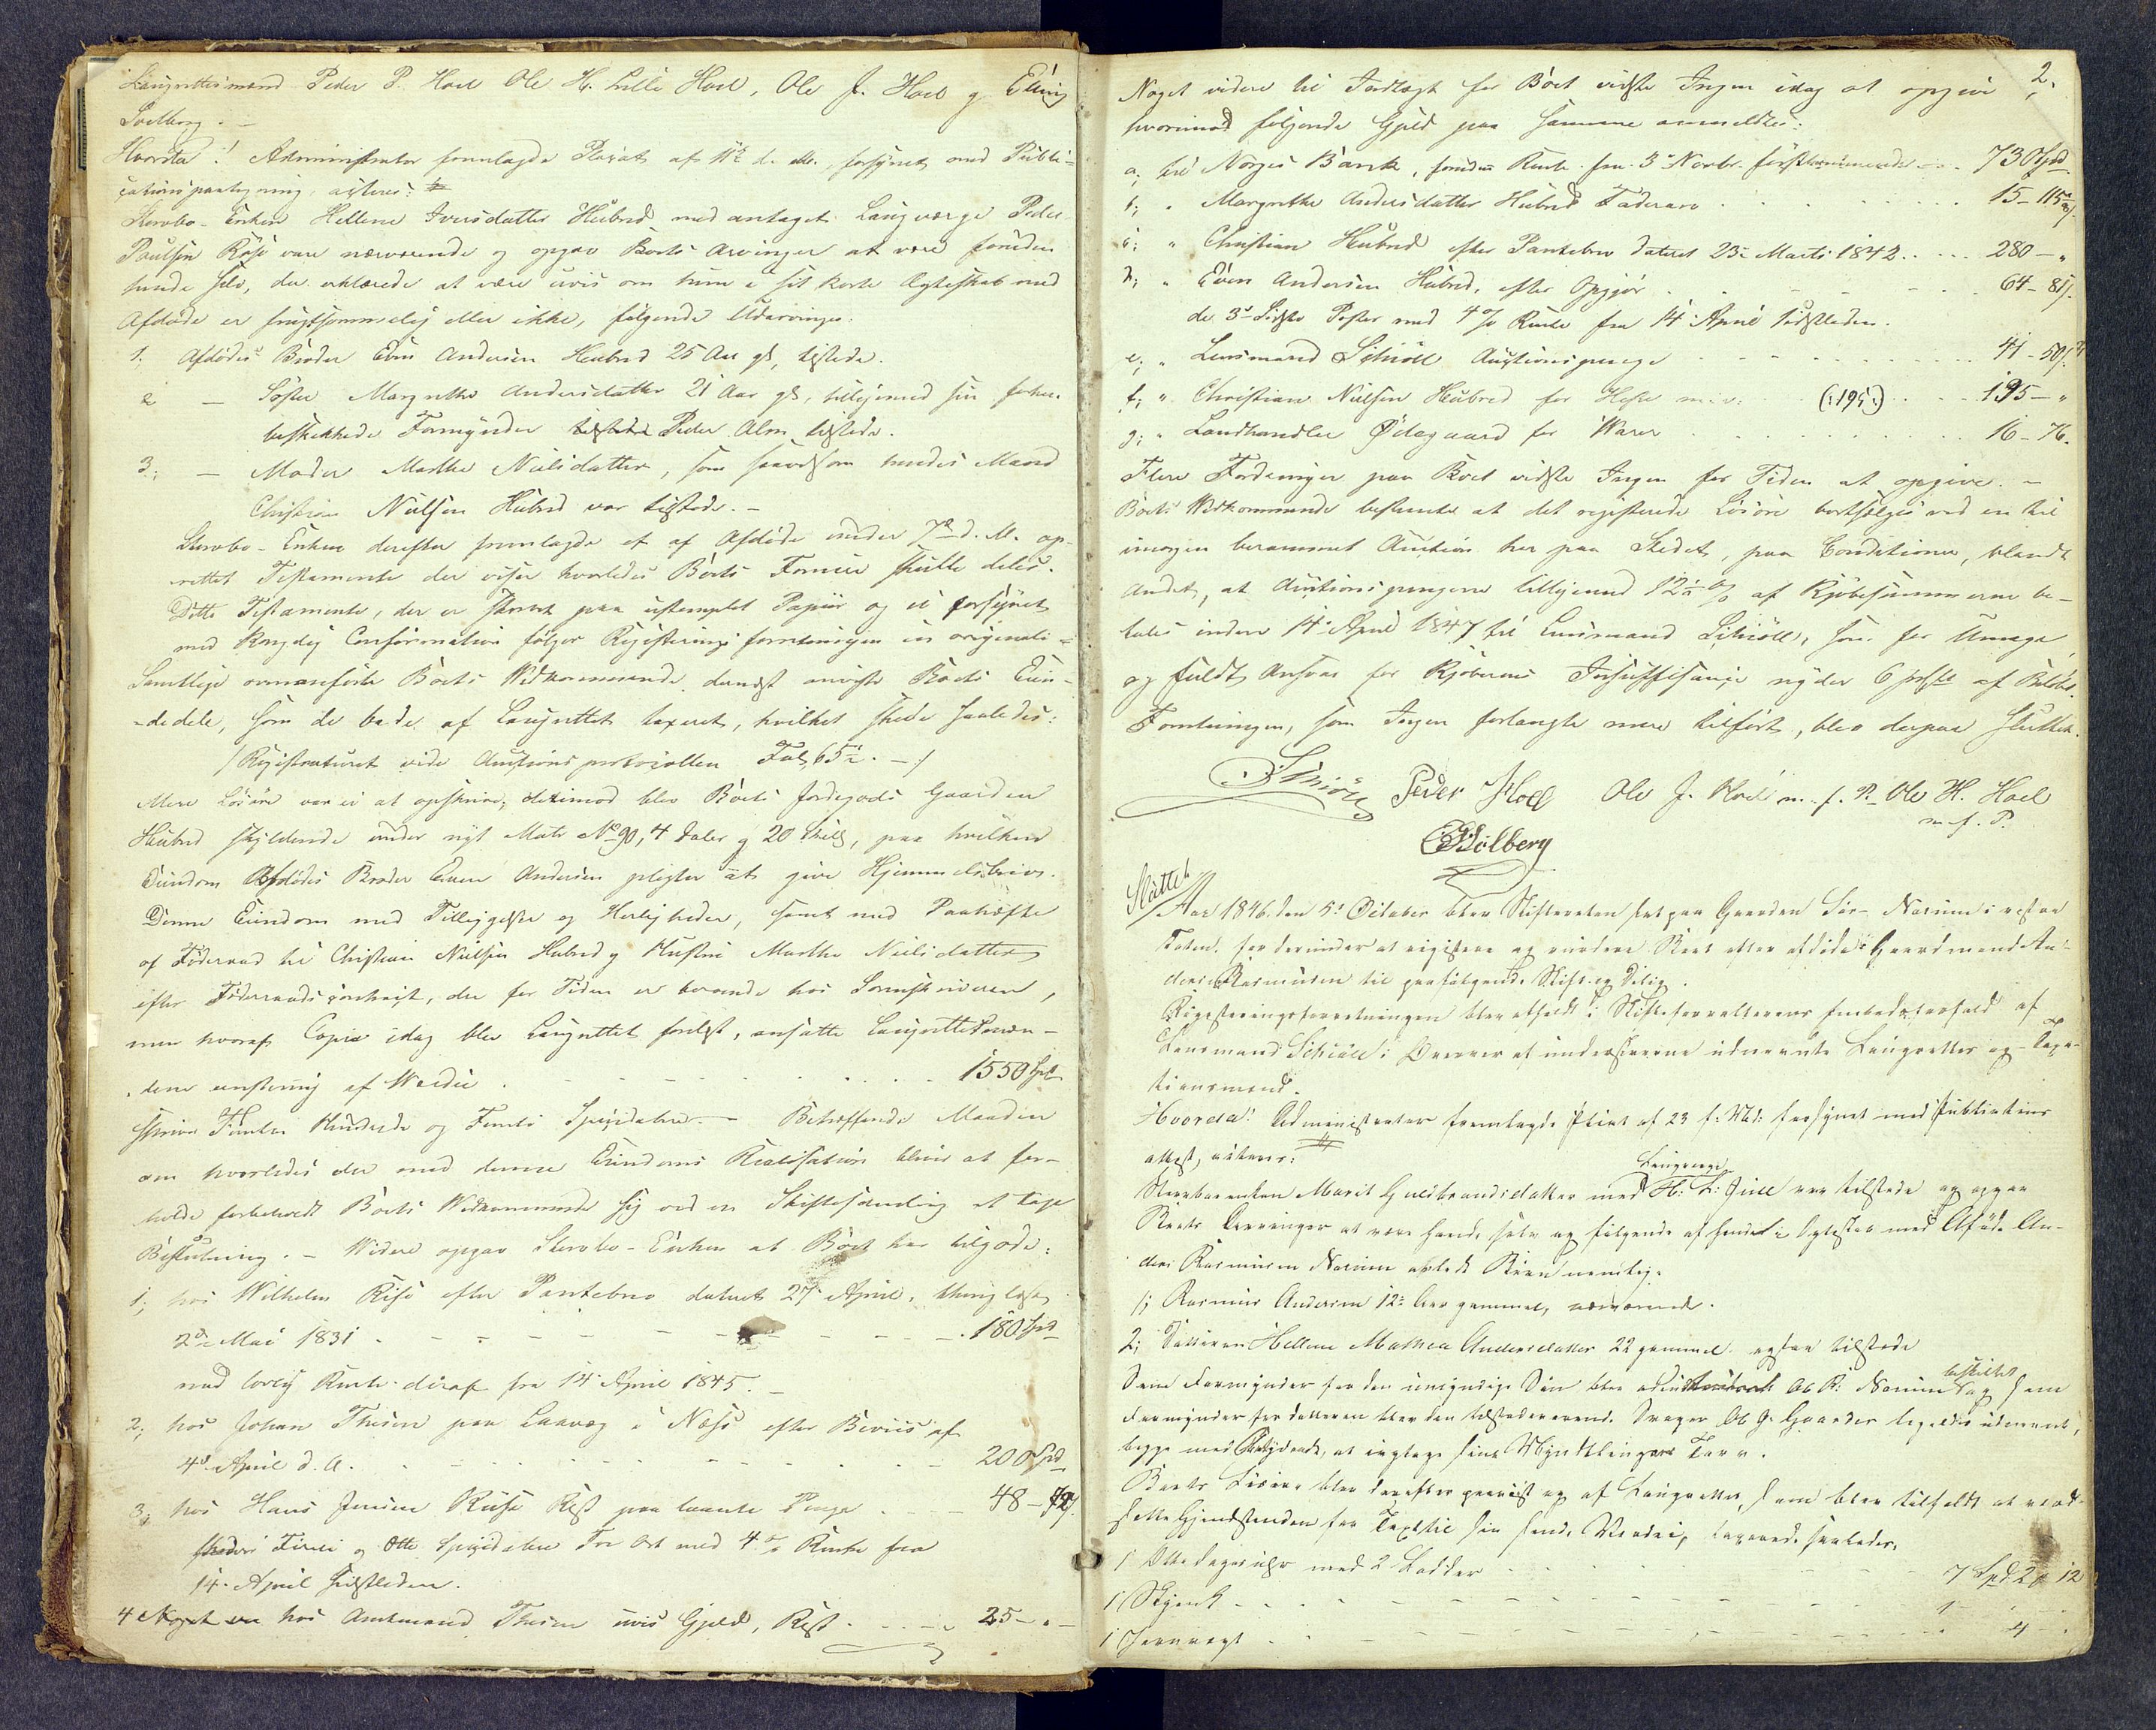 Laugrettesmænd Peder P. Hoel Ole H. Lille Hoel, Ole J. Hoel og E.
Solberg. -
Hvorda! Administrator fremlagde Placat af 11te d. M., forsynet med Publi-
cationspaategning, acteres:
Stervbo-Enken Hellene Iversdatter Hubred med antaget Laugværge Peder
Paulsen Röise vare nærværende og opgav Boets Arvinger at være foruden
hende selv, der erklærede at være uvis om hun i sit korte Ægteskab med
Afdøde er frugtsommelig eller ikke, følgende Udarvinger.
1. Afdødes Broder Even Andersen Hubred 25 Aar gl, tilstede.
2 - Søster Margrethe Andersdatter 21 Aar gl, tilligemed sin forhen
beskikkede Formynder Peder Alm tilstede.
3; - Moder Marthe Nielsdatter, som saavelsom hendes Mand
Christian Nielsen Hubred var tilstede. -
Stervbo-Enken derefter fremlagde et af Afdøde under 7de d. M. op-
rettet Testamente der viser hvorledes Boets Formue skulle deles.
Dette Testamente, der er skrevet paa ustemplet Papiir og ei forsynet
med Kongelig Confirmation følger Registreringsforretningen in originali -
Samtlige ovenanførte Boets Vedkommende dernæst anviste Boets Eien-
-dele, som de bade af Laugrettet taxeret, hvilket skede saaledes:
/Registraturet vide Auctionsprotocollen Fol, 65. -/
Mere Løsøre var ei at opskrive; derimod blev Boets Jordegods Gaarden
Hubred skyldende under nyt Matr No 90, 4 Daler og 20 Skill, paa hvilken
Eiendom Afdødes Broder Even Andersen pligter at give Hjemmelsbrev.
Denne Eiendom med Tilliggelse og Herligheder, samt med Paahæfte
af Föderaad til Christian Nielsen Hubred og Hustru Marthe Nielsdatter
efter Föderaadscontract, der for Tiden er beroende hos Sorenskriveren,
men hvoraf Copie idag blev Laugrettet forelæst, ansatte Laugrettesmæn-
dene eenstemmig af Værdie . . . . . . 1550 Spd
skriver Femten Hundrede og Femti Speciedaler. - Betræffende Maaden
om hvorledes der med denne Eiendoms Realisation bliver at for-
holde forbeholdt Boets Vedkommende sig ved en Skiftesamling at tage
Beslutning. - Videre opgav Stervbo-Enken at Boet har tilgode:
1; hos Wilhelm Rise efter Pantebrev dateret 27 April, thinglæst
2den Mai 1831 . - - - - - - - . 180 Spd
med lovlig Rente deraf fra 14 April 1845. -
2; hos Johan Thesen paa Laavag i Næss efter Beviis af
4de April d. A. - - - - - - - 200 Spd
3; hos Hans Jensen Riise Rest paa laante Penge . . . 48 - 72/.
Firti og Otte Speciedaler Tre Ort med 4 % Rente fra
14. April sidstleden.
4 Noget hos Amtmand Thesen uvis Gjeld, Rest . . . 25 - " -
2;
Noget videre til Indtægt for Boet vidste Ingen idag at opgive
hvorimod følgende Gjeld paa Samme anmeldtes:
a; til Norges Bank, foruden Rente fra 3 Novbr. førstkommende . . . 730 Spd
b; " Margrethe Andersdatter Hubred Fädrearv . . . . . . 15 - 115/.
c; " Christian Hubred efter Pantebrev dateret 23 Marts 1842 . . . . 280 - "
d; " Even Andersen Hubred, efter Opgjør . . . . 64 - 8/.
de 3de sidste Poster med 4 % Rente fra 14 April sidstleden.
e; " Lensmand Schiöll Auctionspenge - - - - 41 - 50/.
f; " Christian Nielsen Hubred for Heste m. v: (:195:) . . . 195 - "
g; " Landhandler Ødegaard for Varer . . . . . . 16 - 76.
Flere Fordringer paa Boet vidste Ingen for Tiden at opgive. -
Boets Vedkommende bestemte at det registrerede Løsøre bortsælges ved en til
imorgen berammet Auction her paa Stedet, paa Conditioner, blandt
Andet, at Auctionspengene tilligemed 12 % af Kjøbesummerne be-
tales inden 14 April 1847 til Lensmand Schiöll, som for Umage
og fuldt Ansvar for Kjøbernes Insufficiance nyder 6 pCt af Beløbet.
Forretningen, som Ingen forlangte mere tilført, blev derpaa sluttet.
Schiöll Peder Hoel Ole J. Hoel m. f. P. Ole H. Hoel
m. f. P.
E Solberg
Sluttet
Aar 1846 den 5te October blev Skifteretten sat paa Gaarden Sör-Narum i vestre
Toten for derunder at registrere og vurdere Boet efter afdøde Gaardmand An-
ders Rasmusen til paafølgende Skifte og Deling.
Registreringsforretningen blev afholdt i Skifteforvalterens Embedsforfald af
Lensmand Schiöll i Overvær af underskrevne udnævnte Laugrettes og Taxa-
tionsmænd.
Hvorda! Administrator fremlagde Placat af 23 f: Md: forsynet med Publications
attest, acteres:
Stervboenken Marit Gulbrandsdatter med Laugværge H: L: Juel var tilstede og opgav
Boets Arvinger at være hende selv og følgende af hendes i Ægteskab med Afdøde An-
ders Rasmusen Narum avlede Børn nemlig:
1; Rasmus Andersen 12 Aar gammel, nærværende.
2; Datteren Hellene Mathea Andersdatter 22 gammel ogsaa tilstede
Som Formynder for den umyndige Søn blev Ole R: Narum beskikket og som
Formynder for Datteren blev den tilstedeværende Svoger Ole G. Gaarder ligeledes udnævnt,
begge med Betydende, at iagttage sine Myndtlingers Tarv.
Boets Løsøre blev derefter paaviist og af Laugrettet, som blev tilholdt at ansæt-
sætte Gjendstanden for Taxt til sin sande Værdi, taxeret saaledes.
1 Otte Dages Uhr med 2 Lodder - - - - 7 Spd 2 # 12
1 Skjenk - - - - - - 1 - . -
1 Jernvægt - - - - - - 4 - .